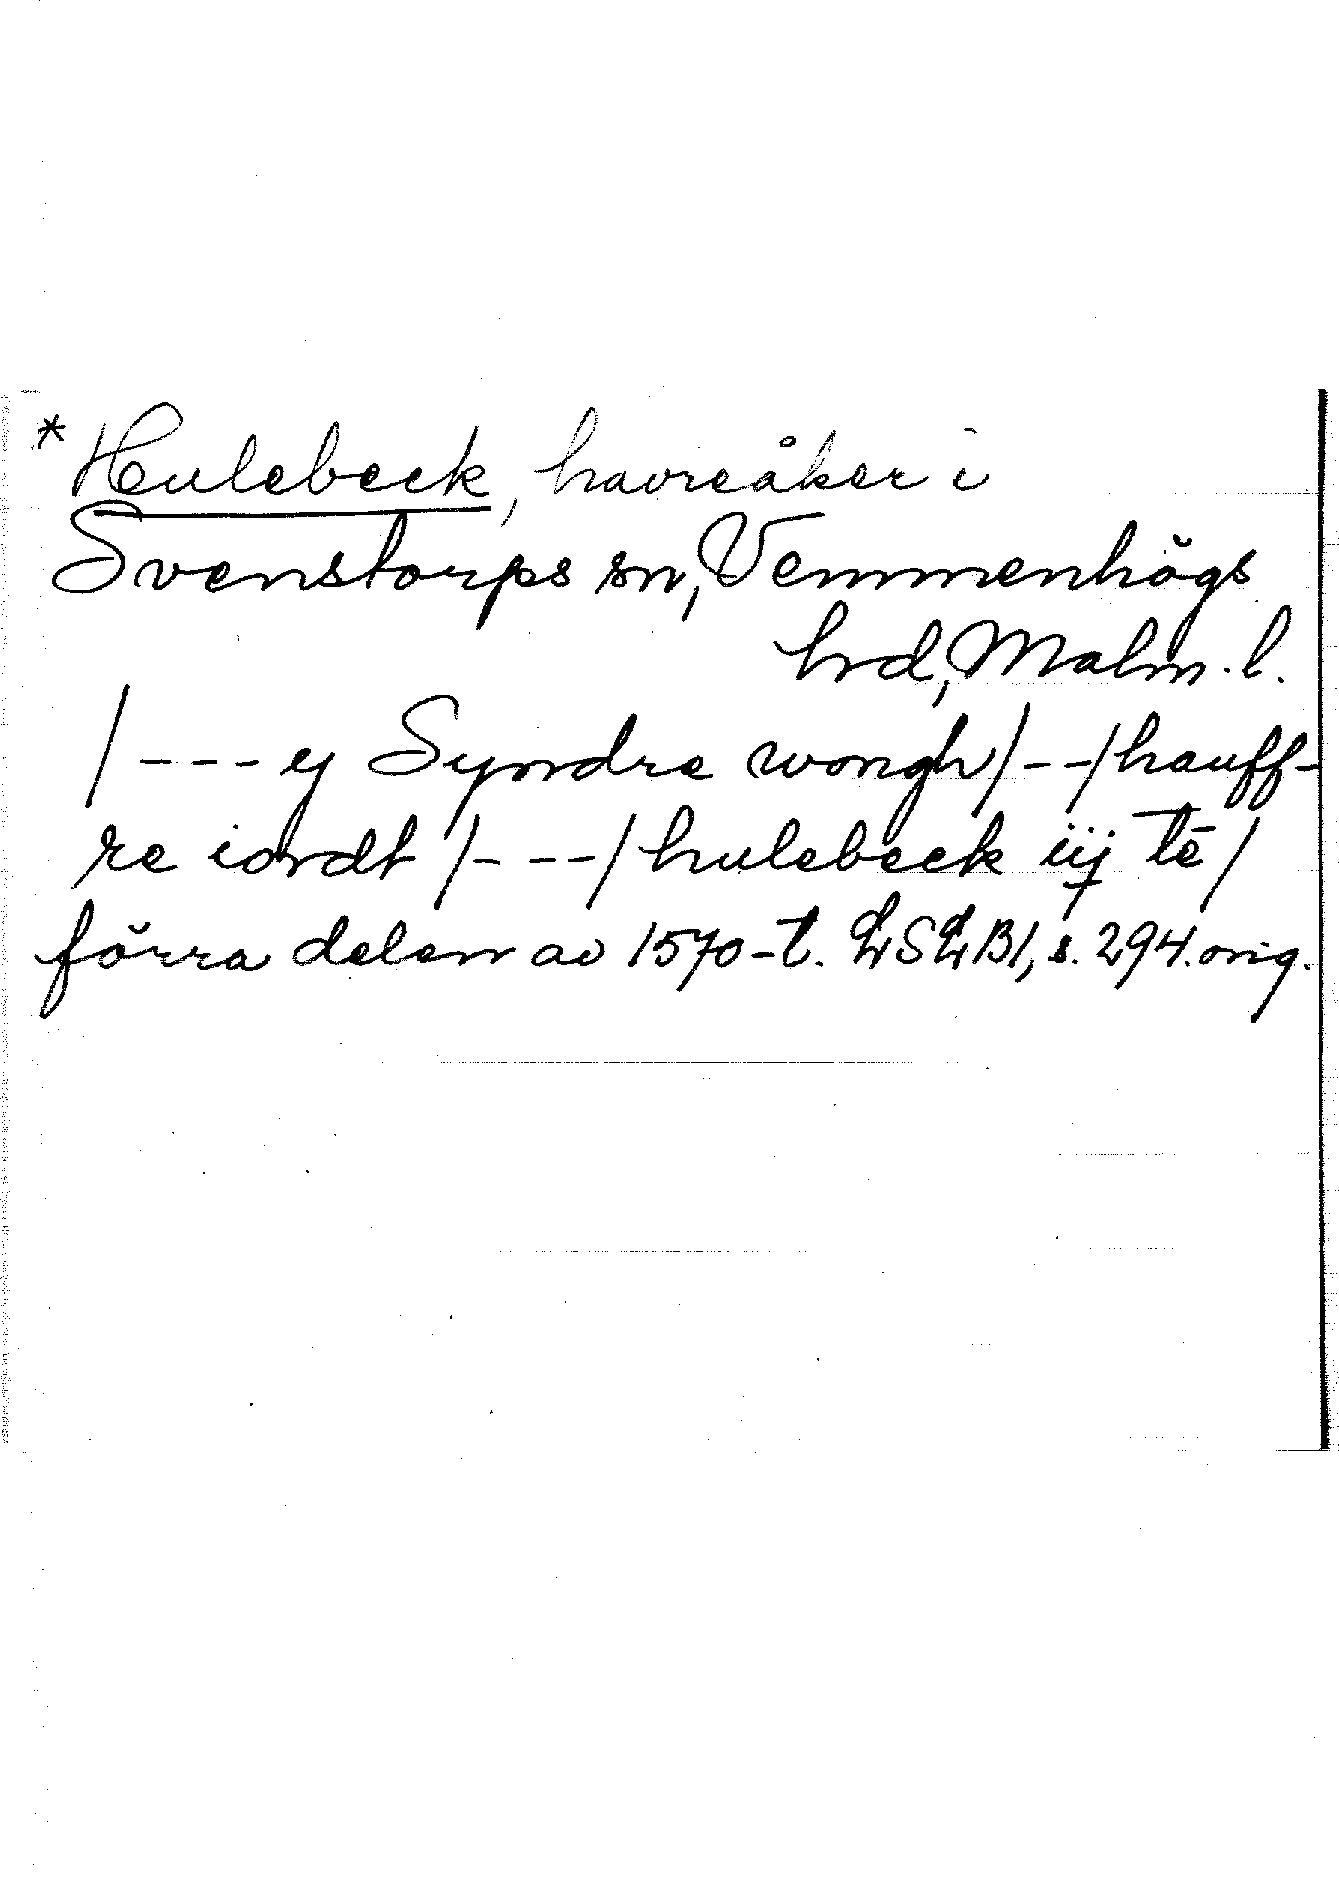 *Hulebeck, havreåker i
Svenstorps sn, Vemmenhögs
hrd, Malm. l.
/---ej Syndre wongh/--/hauff-
re iordt/---/hulebeck iij tē/
förra delen av 1570-t. LSLB1, s. 294. orig.